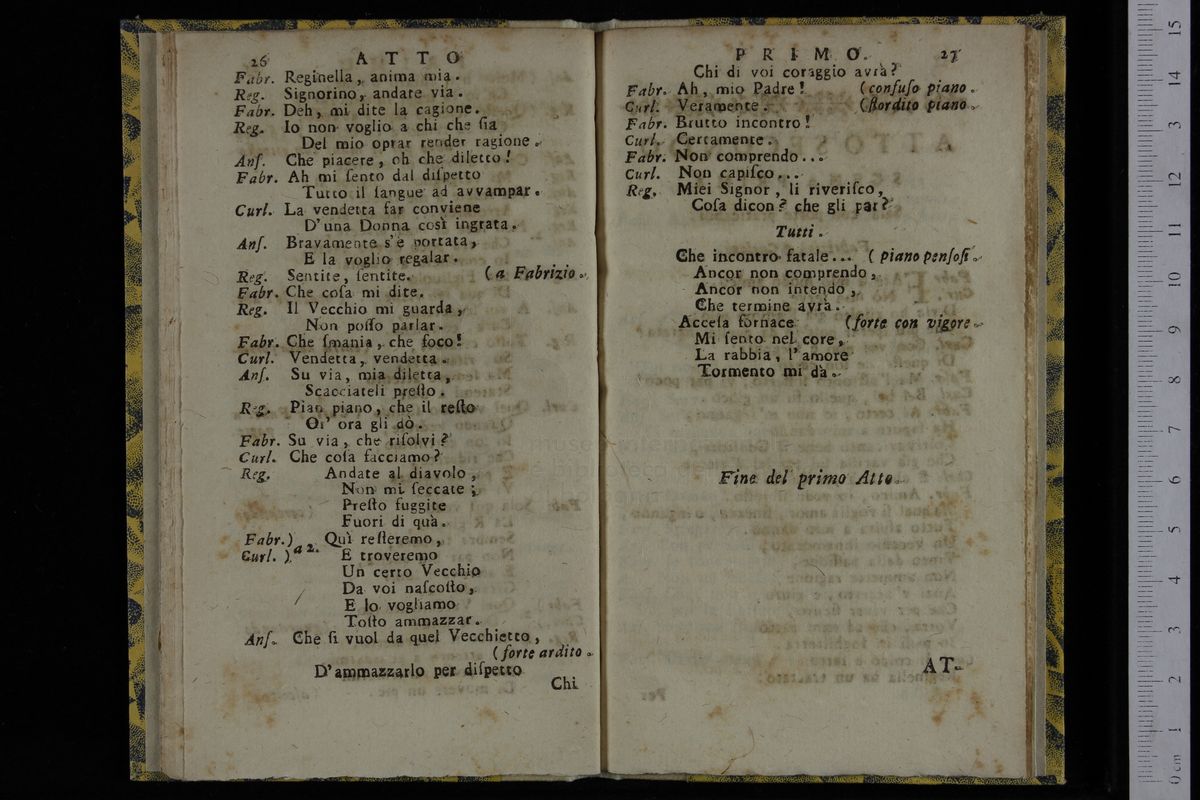 26 ATTO
Fabr. Reginella, anima mia.
Reg. Signorino, andate via.
Fabr. Deh, mi dite la cagione.
Reg. Io non voglio a chi che ſia
Del mio oprar render ragione.
Anſ. Che piacere, oh che diletto!
Fabr. Ah mi ſento dal diſpetto
Tutto il ſangue ad avvampar.
Curl. La vendetta far conviene
D'una Donna così ingrata.
Anſ. Bravamente s'è portata,
E la voglio regalar.
Reg. Sentite, ſentite. (a Fabrizio.
Fabr. Che coſa mi dite.
Reg. Il Vecchio mi guarda,
Non poſſo parlar.
Fabr. Che ſmania, che foco!
Curl. Vendetta, vendetta.
Anſ. Su via, mia diletta,
Scacciateli preſto.
Reg. Pian piano, che il reſto
Or' ora gli dò.
Fabr. Su via, che riſolvi?
Curl. Che coſa facciamo?
Reg. Andate al diavolo,
Non mi ſeccate;
Preſto fuggite
Fuori di quà.
Fabr.) Quì reſteremo,
Curl. ) a 2. E troveremo
Un certo Vecchio
Da voi naſcoſto,
E lo vogliamo
Toſto ammazzar.
Anſ. Che ſi vuol da quel Vecchietto,
(forte ardito.
D'ammazzarlo per diſpetto
Chi
PRIMO. 27
Chi di voi coraggio avrà?
Fabr. Ah, mio Padre! (confuſo piano.
Curl. Veramente. (ſtordito piano.
Fabr. Brutto incontro!
Curl. Certamente.
Fabr. Non comprendo...
Curl. Non capiſco...
Reg. Miei Signor, li riveriſco,
Coſa dicon? che gli par?
Tutti.
Che incontro fatale... (piano penſoſi.
Ancor non comprendo,
Ancor non intendo,
Che termine avrà.
Acceſa fornace (forte con vigore.
Mi ſento nel core,
La rabbia, l'amore
Tormento mi dà.
Fine del primo Atto.
AT-